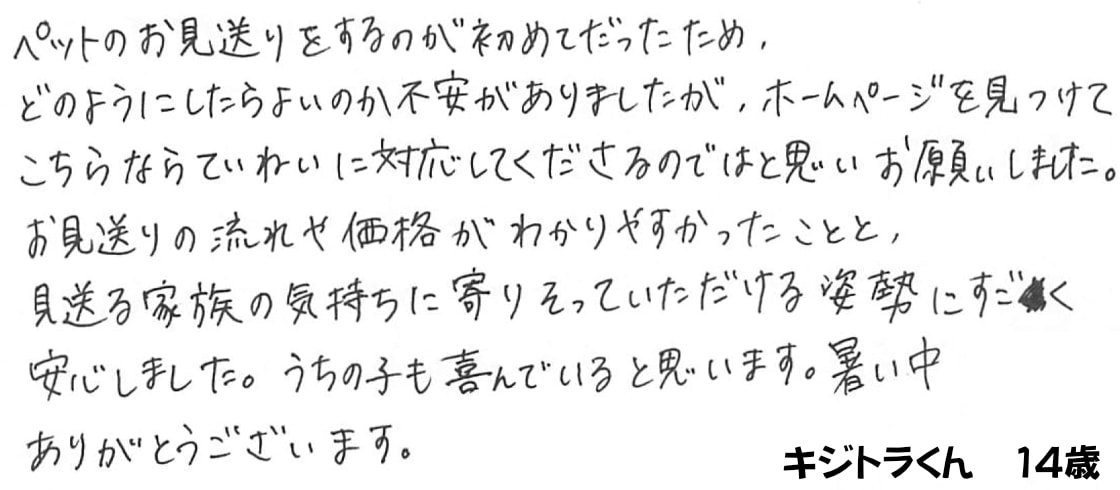 ペットのお見送りをするのが初めてだったため,
どのようにしたらよいのか不安がありましたが,ホームページを見つけて
こちらならていねいに対応してくださるのではと思いお願いしました。
お見送りの流れや価格がわかりやすかったことと,
見送る家族の気持ちに寄りそっていただける姿勢にすごく
安心しました。うちの子も喜んでいると思います。暑い中
ありがとうございます。
キジトラくん 14歳